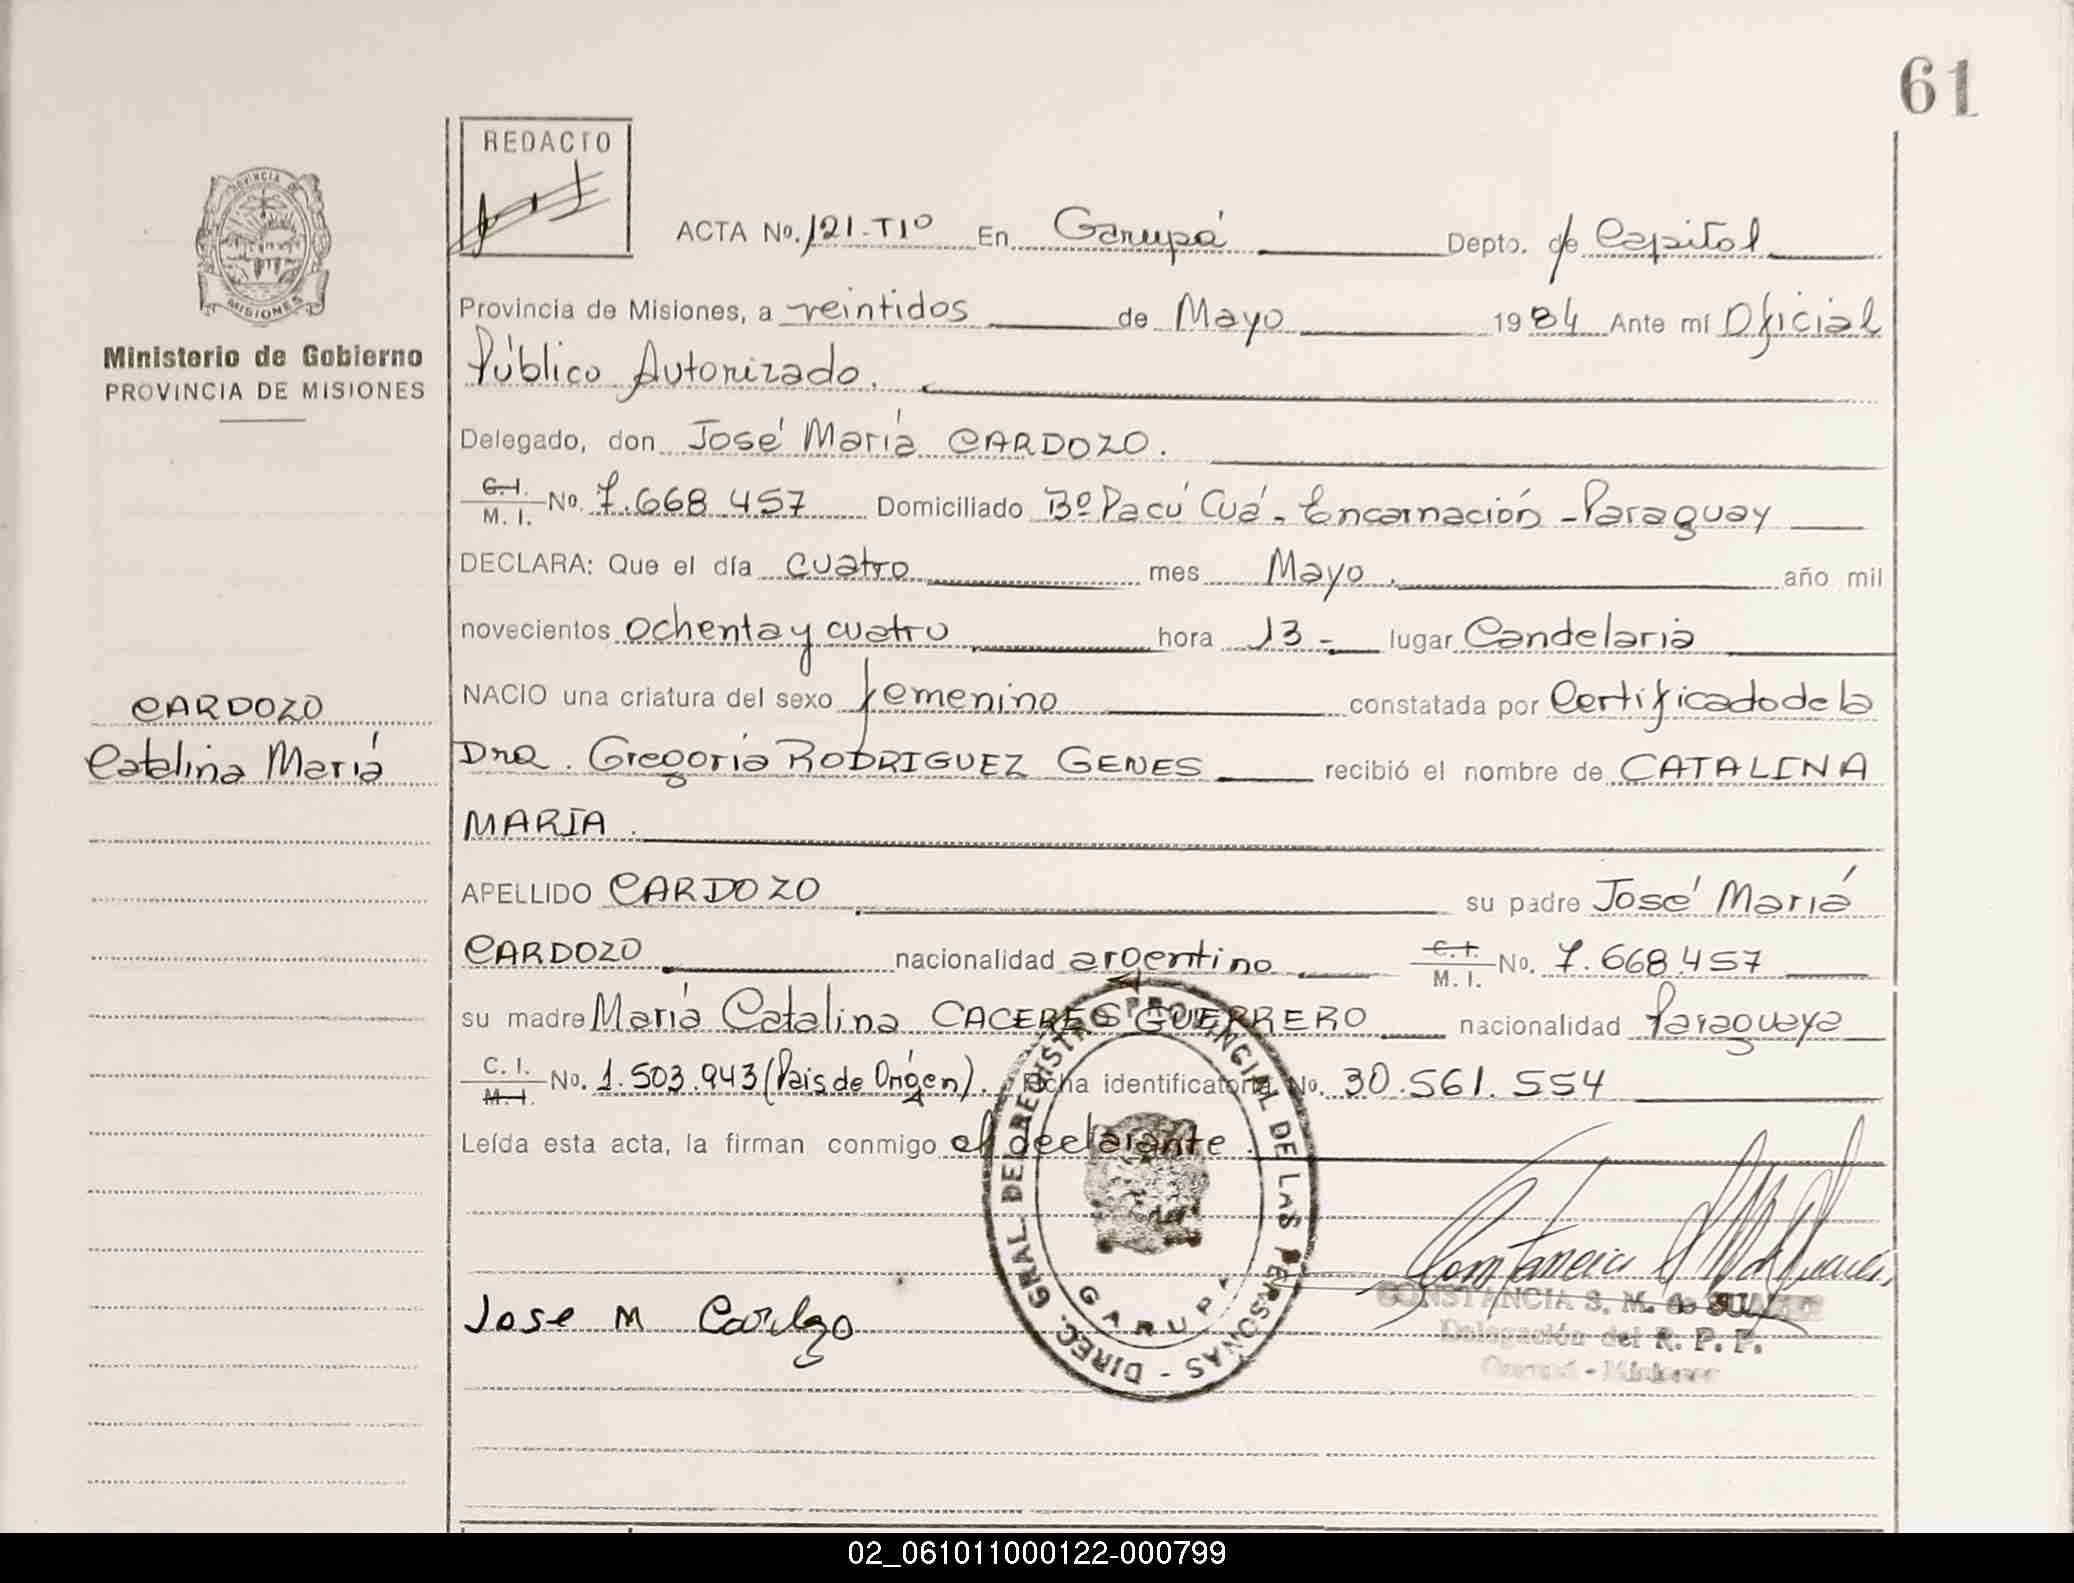 61
REDACTO
PROVINCIA DE
MISIONES
Ministerio de Gobierno
PROVINCIA DE MISIONES
ACTA No. 121-Tlo En Garupá Depto. de Capital
Provincia de Misiones, a veintidos de Mayo 1984 Ante mí Oficial
Público Autorizado.
Delegado, don José María CARDOZO.
C.I. M. I. No. 7.668.457 Domiciliado Bº Pacú Cuá - Encarnación - Paraguay
DECLARA: Que el día cuatro mes Mayo. año mil
novecientos ochenta y cuatro hora 13 - lugar Candelaria
CARDOZO
Catalina María
NACIO una criatura del sexo femenino constatada por Certificado de la
Dra. Gregoria RODRIGUEZ GENES recibió el nombre de CATALINA
MARIA.
APELLIDO CARDOZO su padre José María
CARDOZO nacionalidad argentino C.I. M. I. No. 7.668.457
su madre María Catalina CACERES GUERRERO nacionalidad Paraguaya
C. I. M. I. No. 1.503.943 (País de Origen). Ficha identificatoria No. 30.561.554
Leída esta acta, la firman conmigo el declarante.
DIREC. GRAL. DEL REGISTRO PROVINCIAL DE LAS PERSONAS -
GARUPA
Jose M Cardozo
CONSTANCIA S. M. de
Delegación del R. P. P.
Garupá - Misiones
02_061011000122-000799